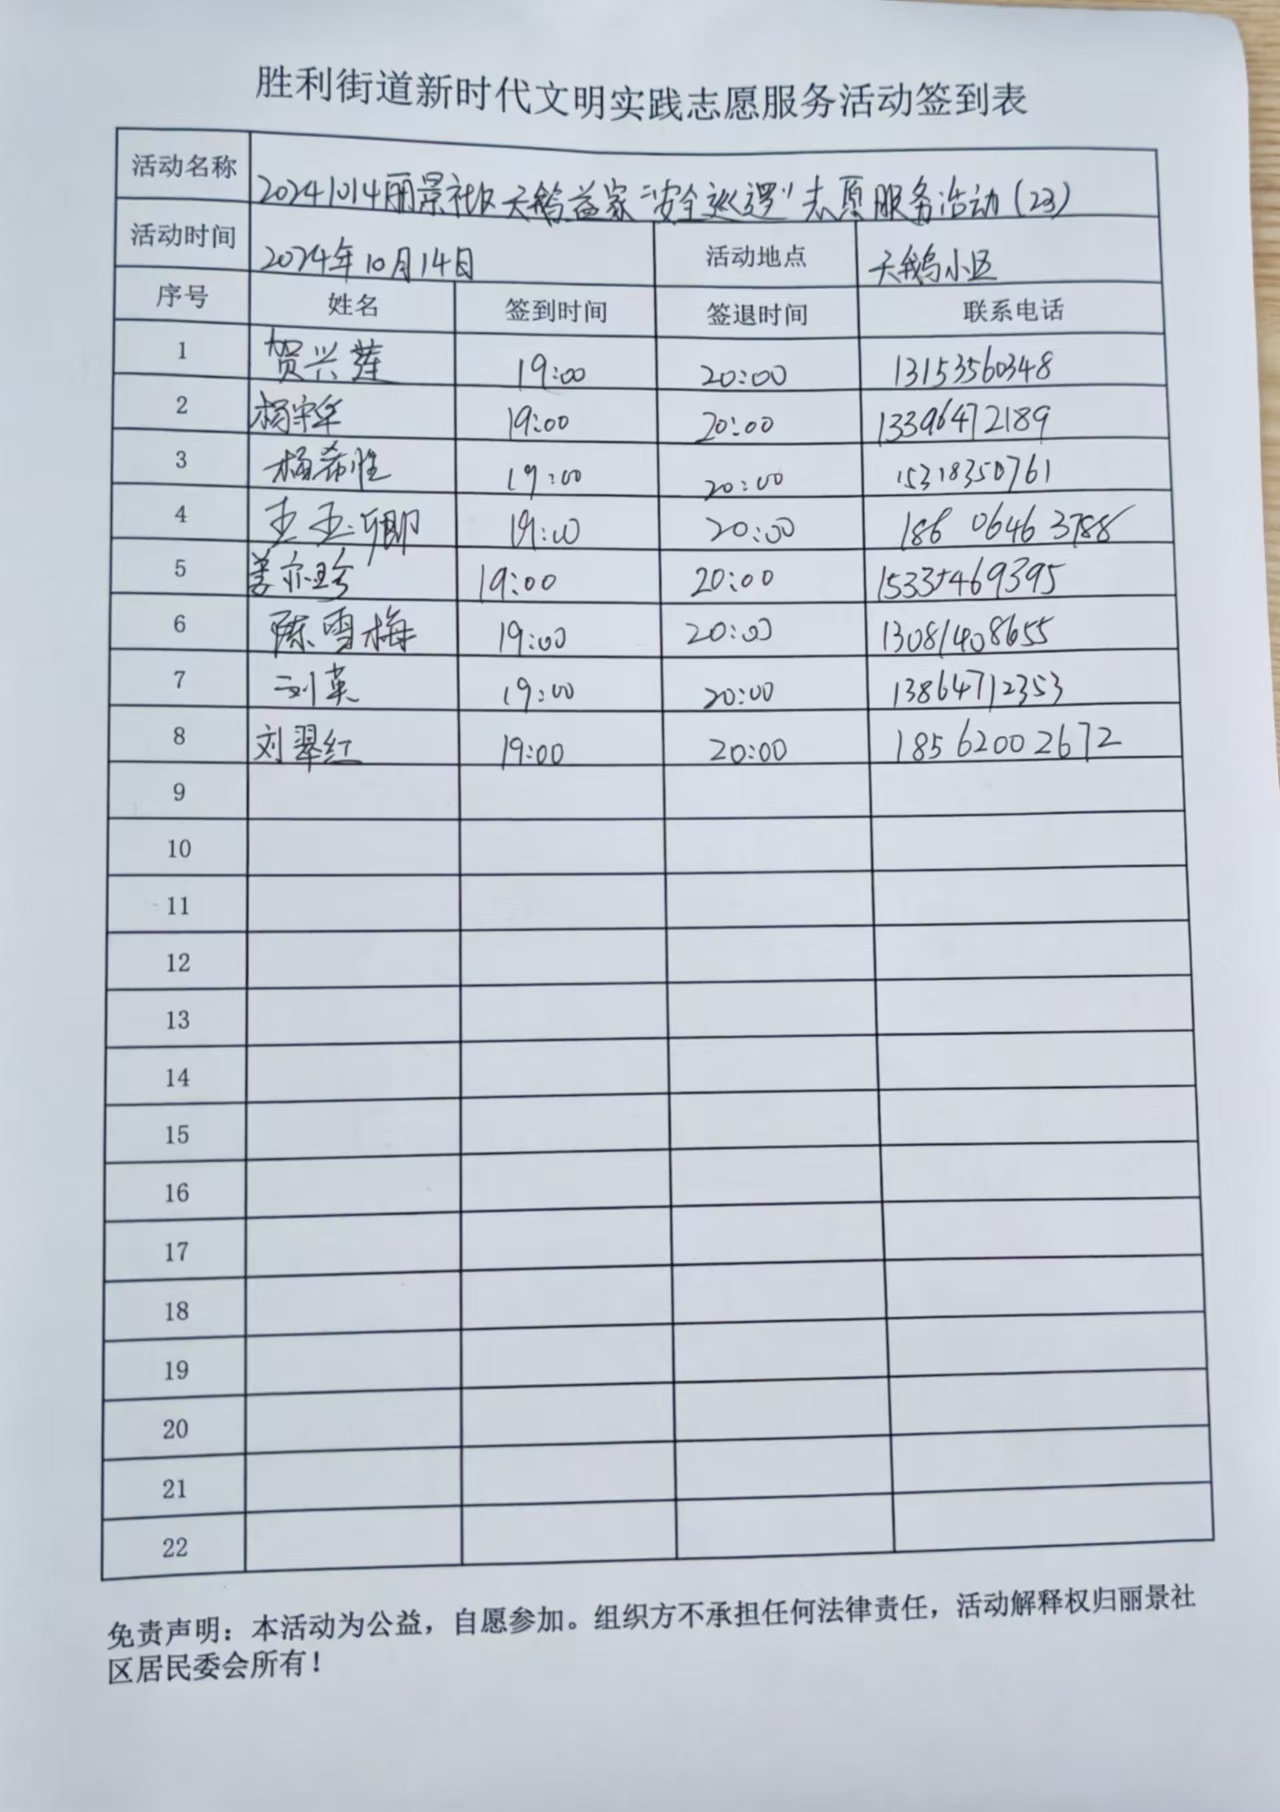 胜利街道新时代文明实践志愿服务活动签到表
活动名称 20241014丽景社区天鹅益家“安全巡逻”志愿服务活动(23)
活动时间 2024年10月14日 活动地点 天鹅小区
序号 姓名 签到时间 签退时间 联系电话
1 贺兴莲 19:00 20:00 13153560348
2 19:00 20:00 13396472189
3 杨希胜 19:00 20:00 15318350761
4 王玉卿 19:00 20:00 186 0646 3788
5 姜亦珍 19:00 20:00 15335469395
6 陈雪梅 19:00 20:00 13081408655
7 刘英 19:00 20:00 13864712353
8 刘翠红 19:00 20:00 18562002672
9
10
11
12
13
14
15
16
17
18
19
20
21
22
免责声明：本活动为公益，自愿参加。组织方不承担任何法律责任，活动解释权归丽景社
区居民委会所有！